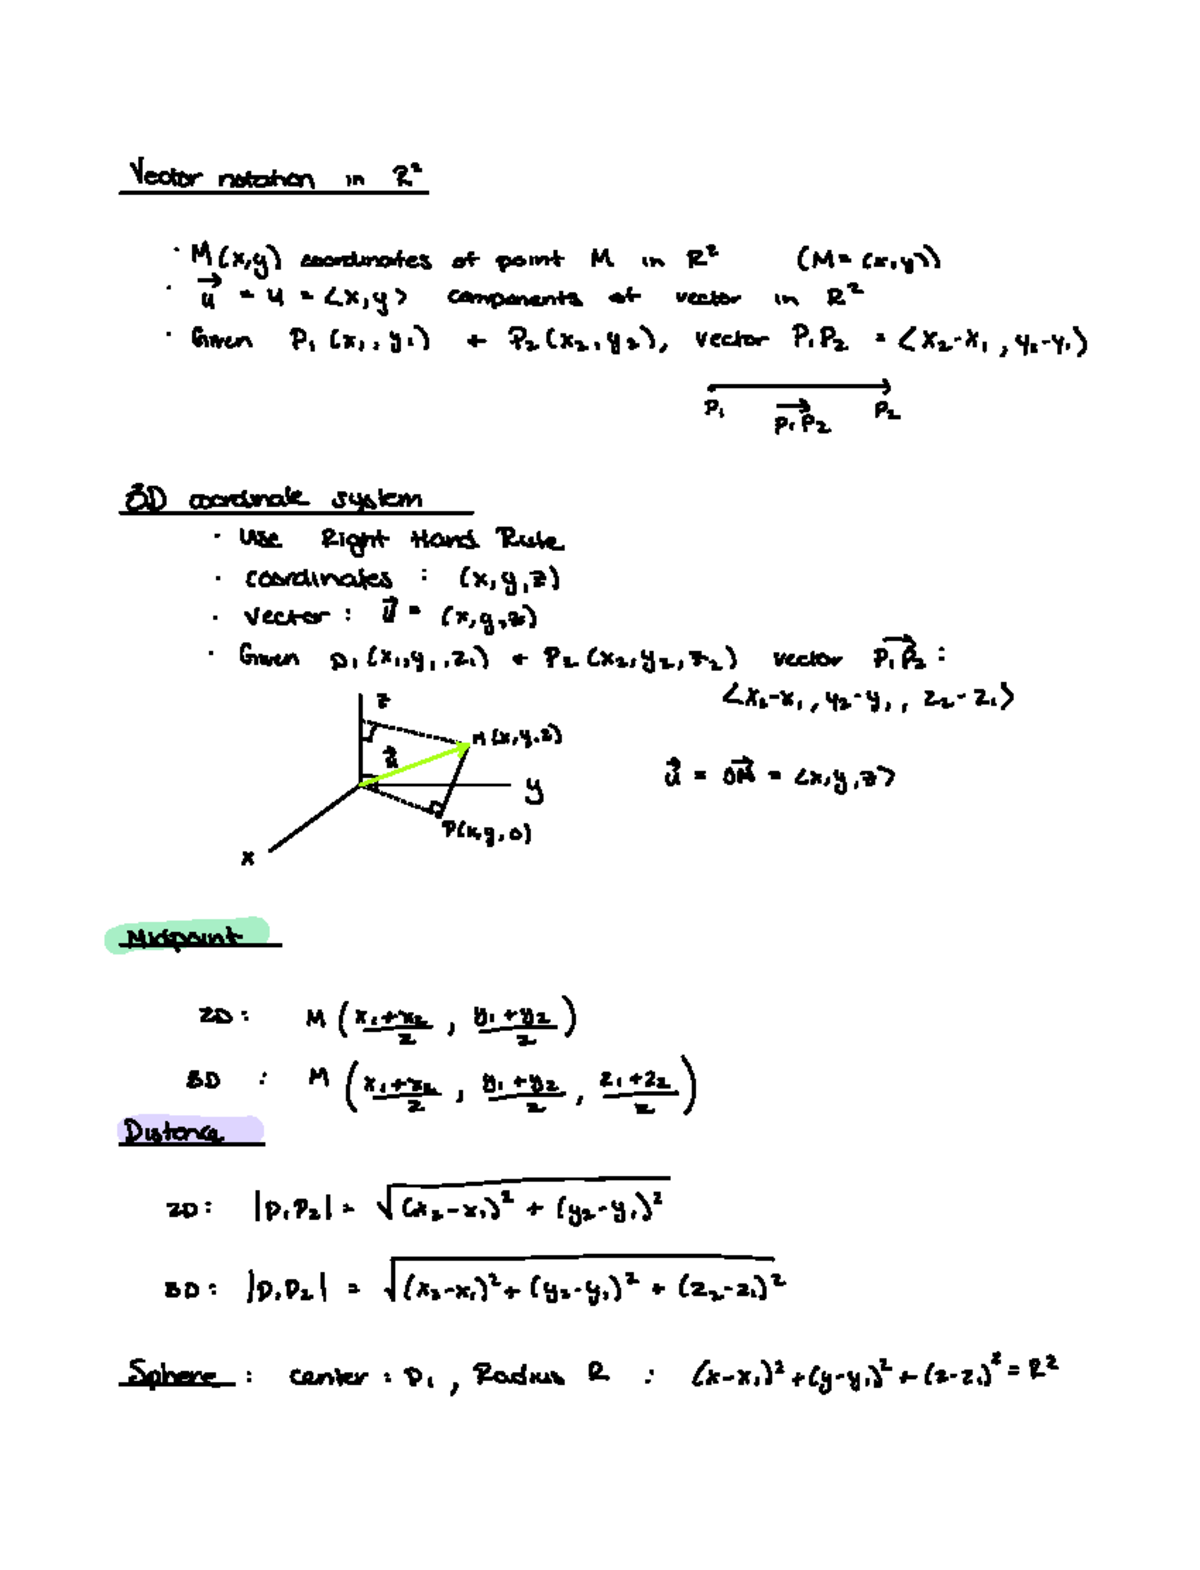 Vector notation in R²
· M(x,y) coordinates of point M in R² (M = (x,y))
· u⃗ = u = <x,y> components of vector in R²
· Given P₁ (x₁, y₁) + P₂ (x₂, y₂), vector P₁P₂ = <x₂-x₁, y₂-y₁>
P₁ P₁P₂ P₂
3D coordinate system
· Use Right Hand Rule
· coordinates : (x, y, z)
· Vector : u⃗ = (x, y, z)
· Given P₁ (x₁, y₁, z₁) + P₂ (x₂, y₂, z₂) vector P₁P₂ :
<x₂-x₁, y₂-y₁, z₂-z₁>
z
M(x,y,z)
u⃗
u⃗ = OM = <x,y,z>
y
P(x,y,0)
x
Midpoint
2D : M ( x₁+x₂/2 , y₁+y₂/2 )
3D : M ( x₁+x₂/2 , y₁+y₂/2 , z₁+z₂/2 )
Distance
2D : |P₁P₂| = √(x₂-x₁)² + (y₂-y₁)²
3D : |P₁P₂| = √(x₂-x₁)² + (y₂-y₁)² + (z₂-z₁)²
Sphere : center : P₁, Radius R : (x-x₁)² + (y-y₁)² + (z-z₁)² = R²